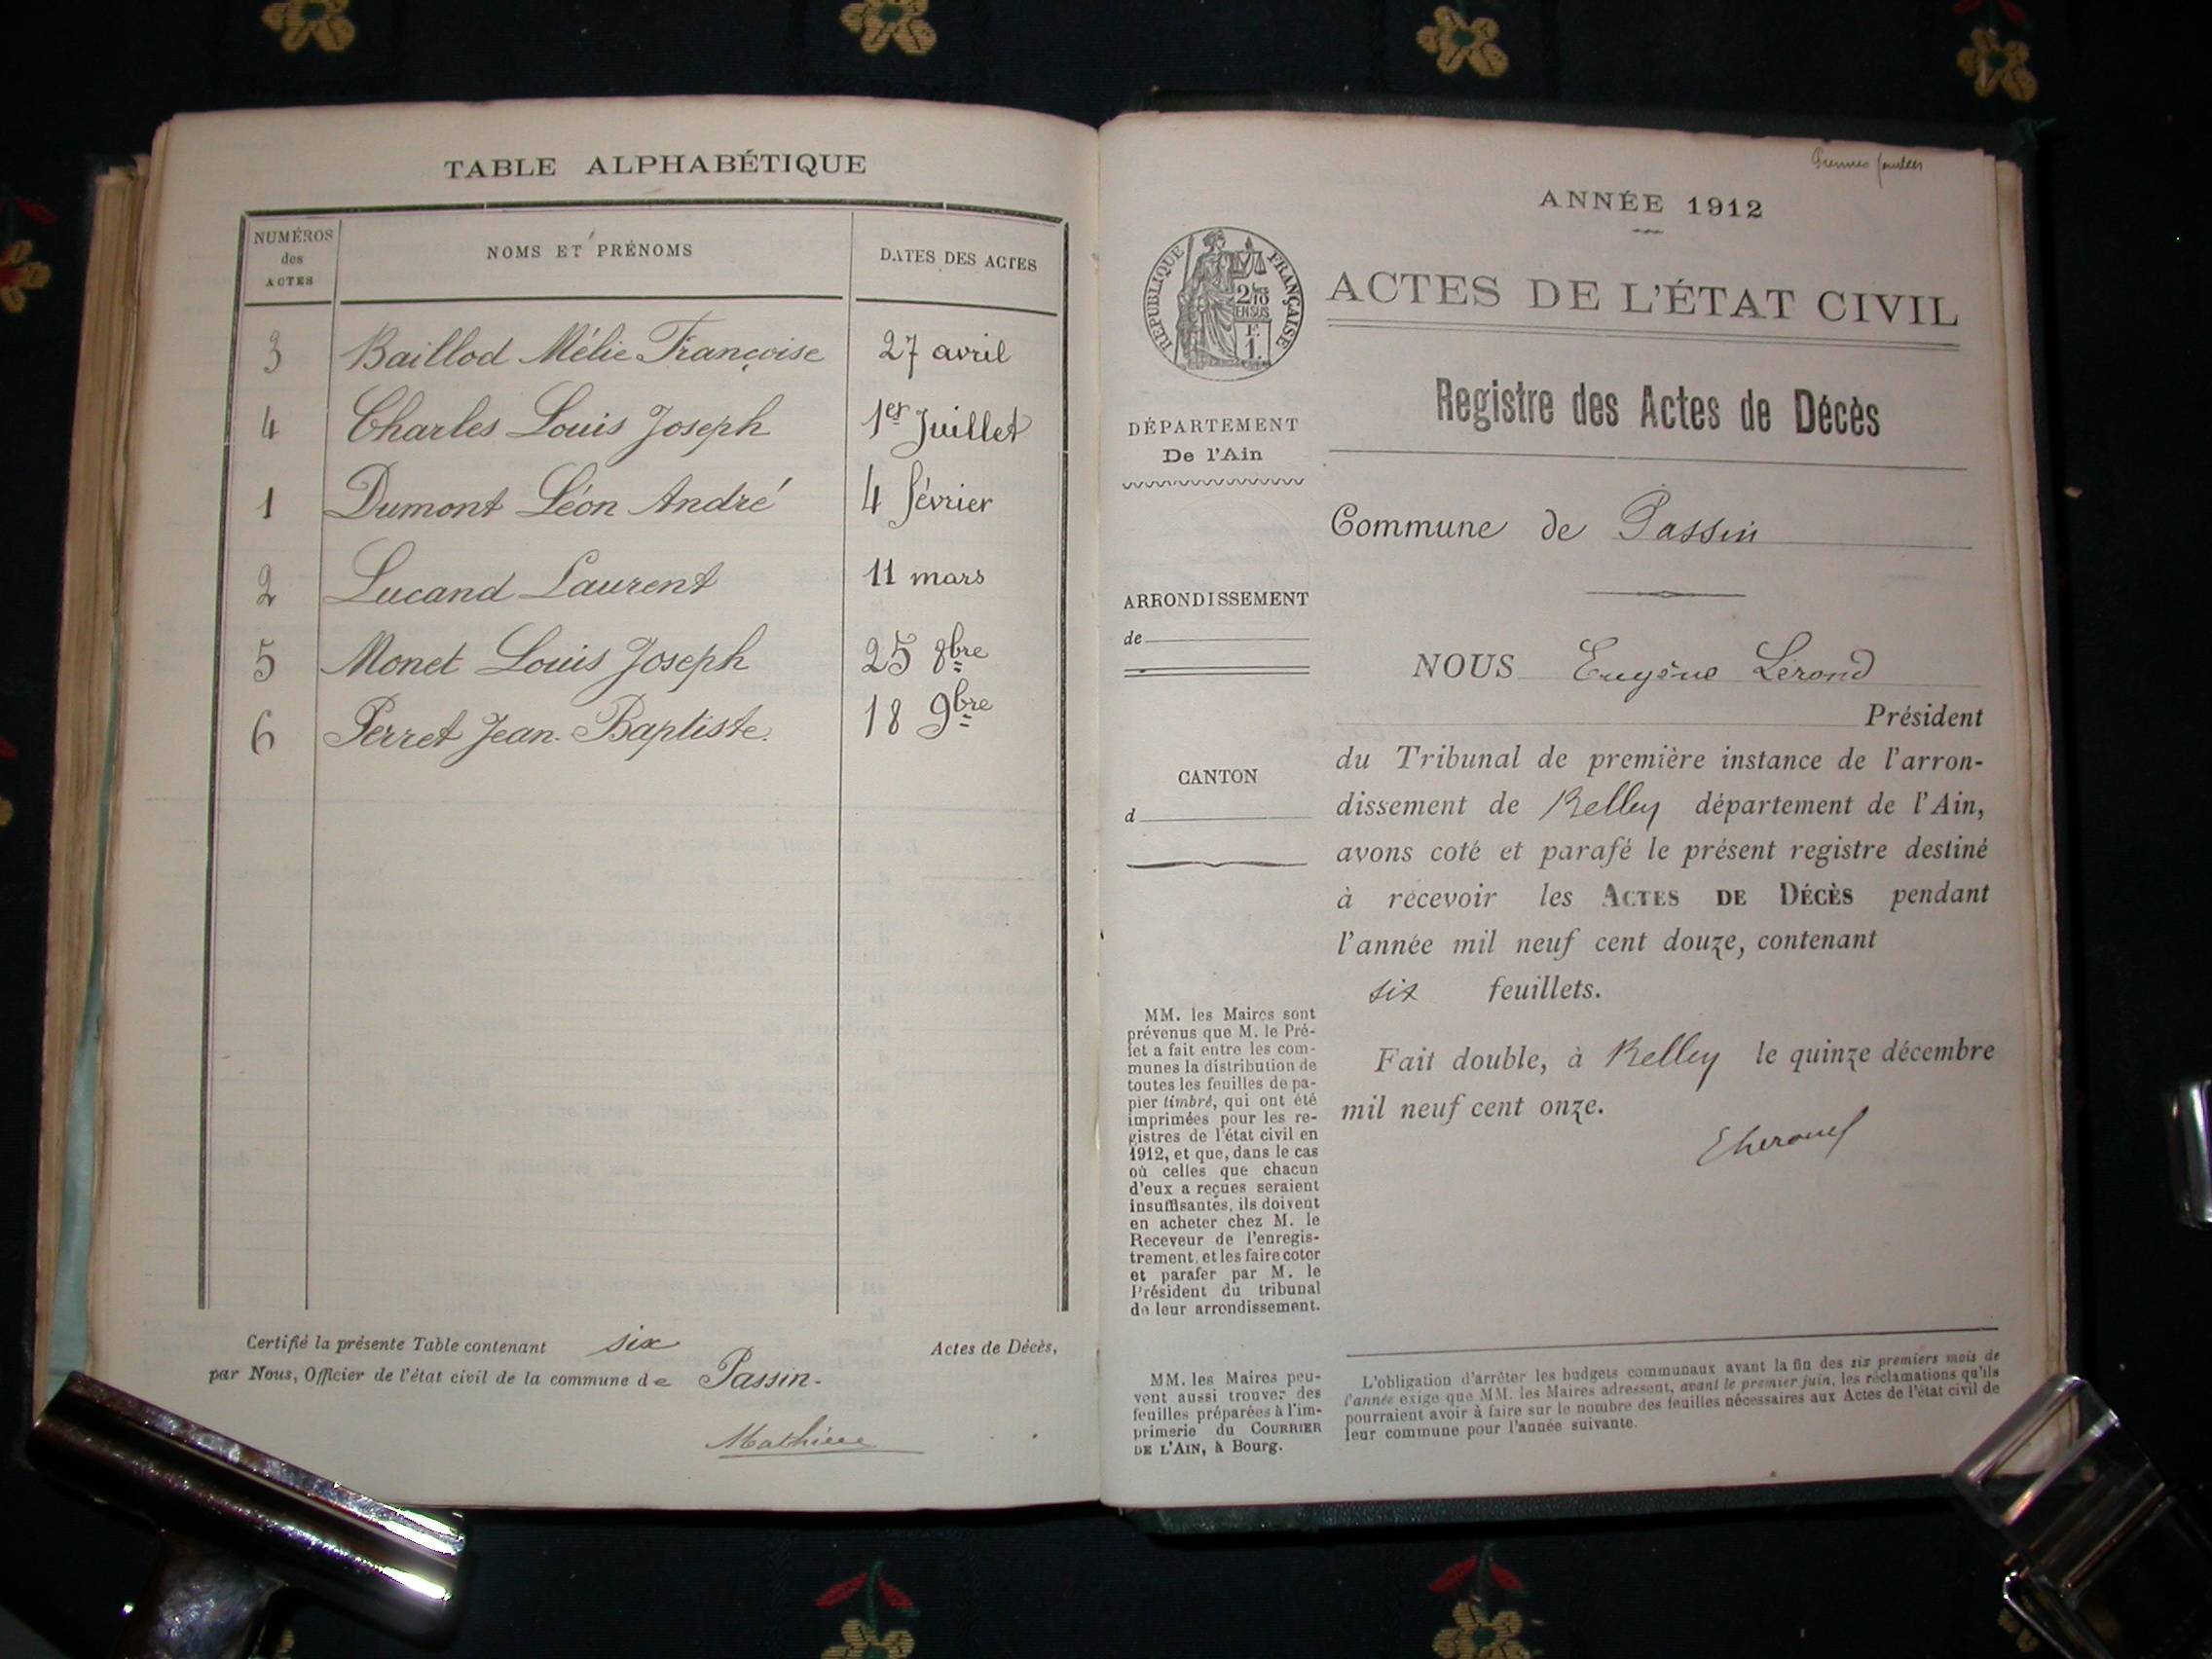 TABLE ALPHABÉTIQUE
NUMÉROS
des
ACTES
NOMS ET PRÉNOMS
DATES DES ACTES
3 Baillod Mélie Françoise 27 avril
4 Charles Louis Joseph 1er Juillet
1 Dumont Léon André 4 février
2 Lucand Laurent 11 mars
5 Monet Louis Joseph 25 8bre
6 Perret Jean-Baptiste. 18 9bre
Certifié la présente Table contenant six Actes de Décès,
par Nous, Officier de l'état civil de la commune de Passin-
Mathieu
ANNÉE 1912
RÉPUBLIQUE FRANÇAISE
2/10
EN SUS
F.
1.
ACTES DE L'ÉTAT CIVIL
Registre des Actes de Décès
DÉPARTEMENT
De l'Ain
Commune de Passin
ARRONDISSEMENT
de
CANTON
d
NOUS Eugène Lerond
Président
du Tribunal de première instance de l'arron-
dissement de Belley département de l'Ain,
avons coté et parafé le présent registre destiné
à recevoir les ACTES DE DÉCÈS pendant
l'année mil neuf cent douze, contenant
six feuillets.
Fait double, à Belley le quinze décembre
mil neuf cent onze.
MM. les Maires sont
prévenus que M. le Pré-
fet a fait entre les com-
munes la distribution de
toutes les feuilles de pa-
pier timbré, qui ont été
imprimées pour les re-
gistres de l'état civil en
1912, et que, dans le cas
où celles que chacun
d'eux a reçues seraient
insuffisantes, ils doivent
en acheter chez M. le
Receveur de l'enregis-
trement, et les faire coter
et parafer par M. le
Président du tribunal
de leur arrondissement.
MM. les Maires peu-
vent aussi trouver des
feuilles préparées à l'im-
primerie du COURRIER
DE L'AIN, à Bourg.
L'obligation d'arrêter les budgets communaux avant la fin des six premiers mois de
l'année exige que MM. les Maires adressent, avant le premier juin, les réclamations qu'ils
pourraient avoir à faire sur le nombre des feuilles nécessaires aux Actes de l'état civil de
leur commune pour l'année suivante.